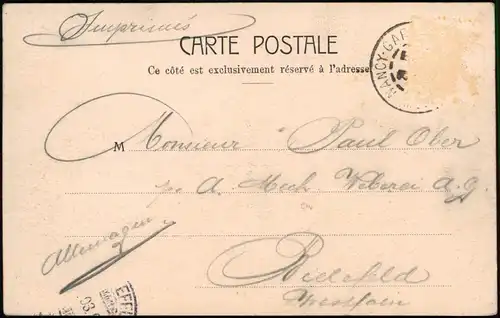 Imprimés
CARTE POSTALE
Ce côté est exclusivement réservé à l'adresse
NANCY-GA
Monsieur Paul Ober
A. Mech. Weberei A.G.
Allemagne
Bielefeld
Westfalen